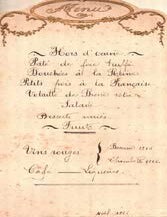 Menu
Hors d'œuvre
Paté de foie truffé
Bouchées à la Reine
Petits pois à la Française
Volaille de Bresse rotie
Salade
Desserts variés
Fruits
Vins rouges
Café - Liqueurs